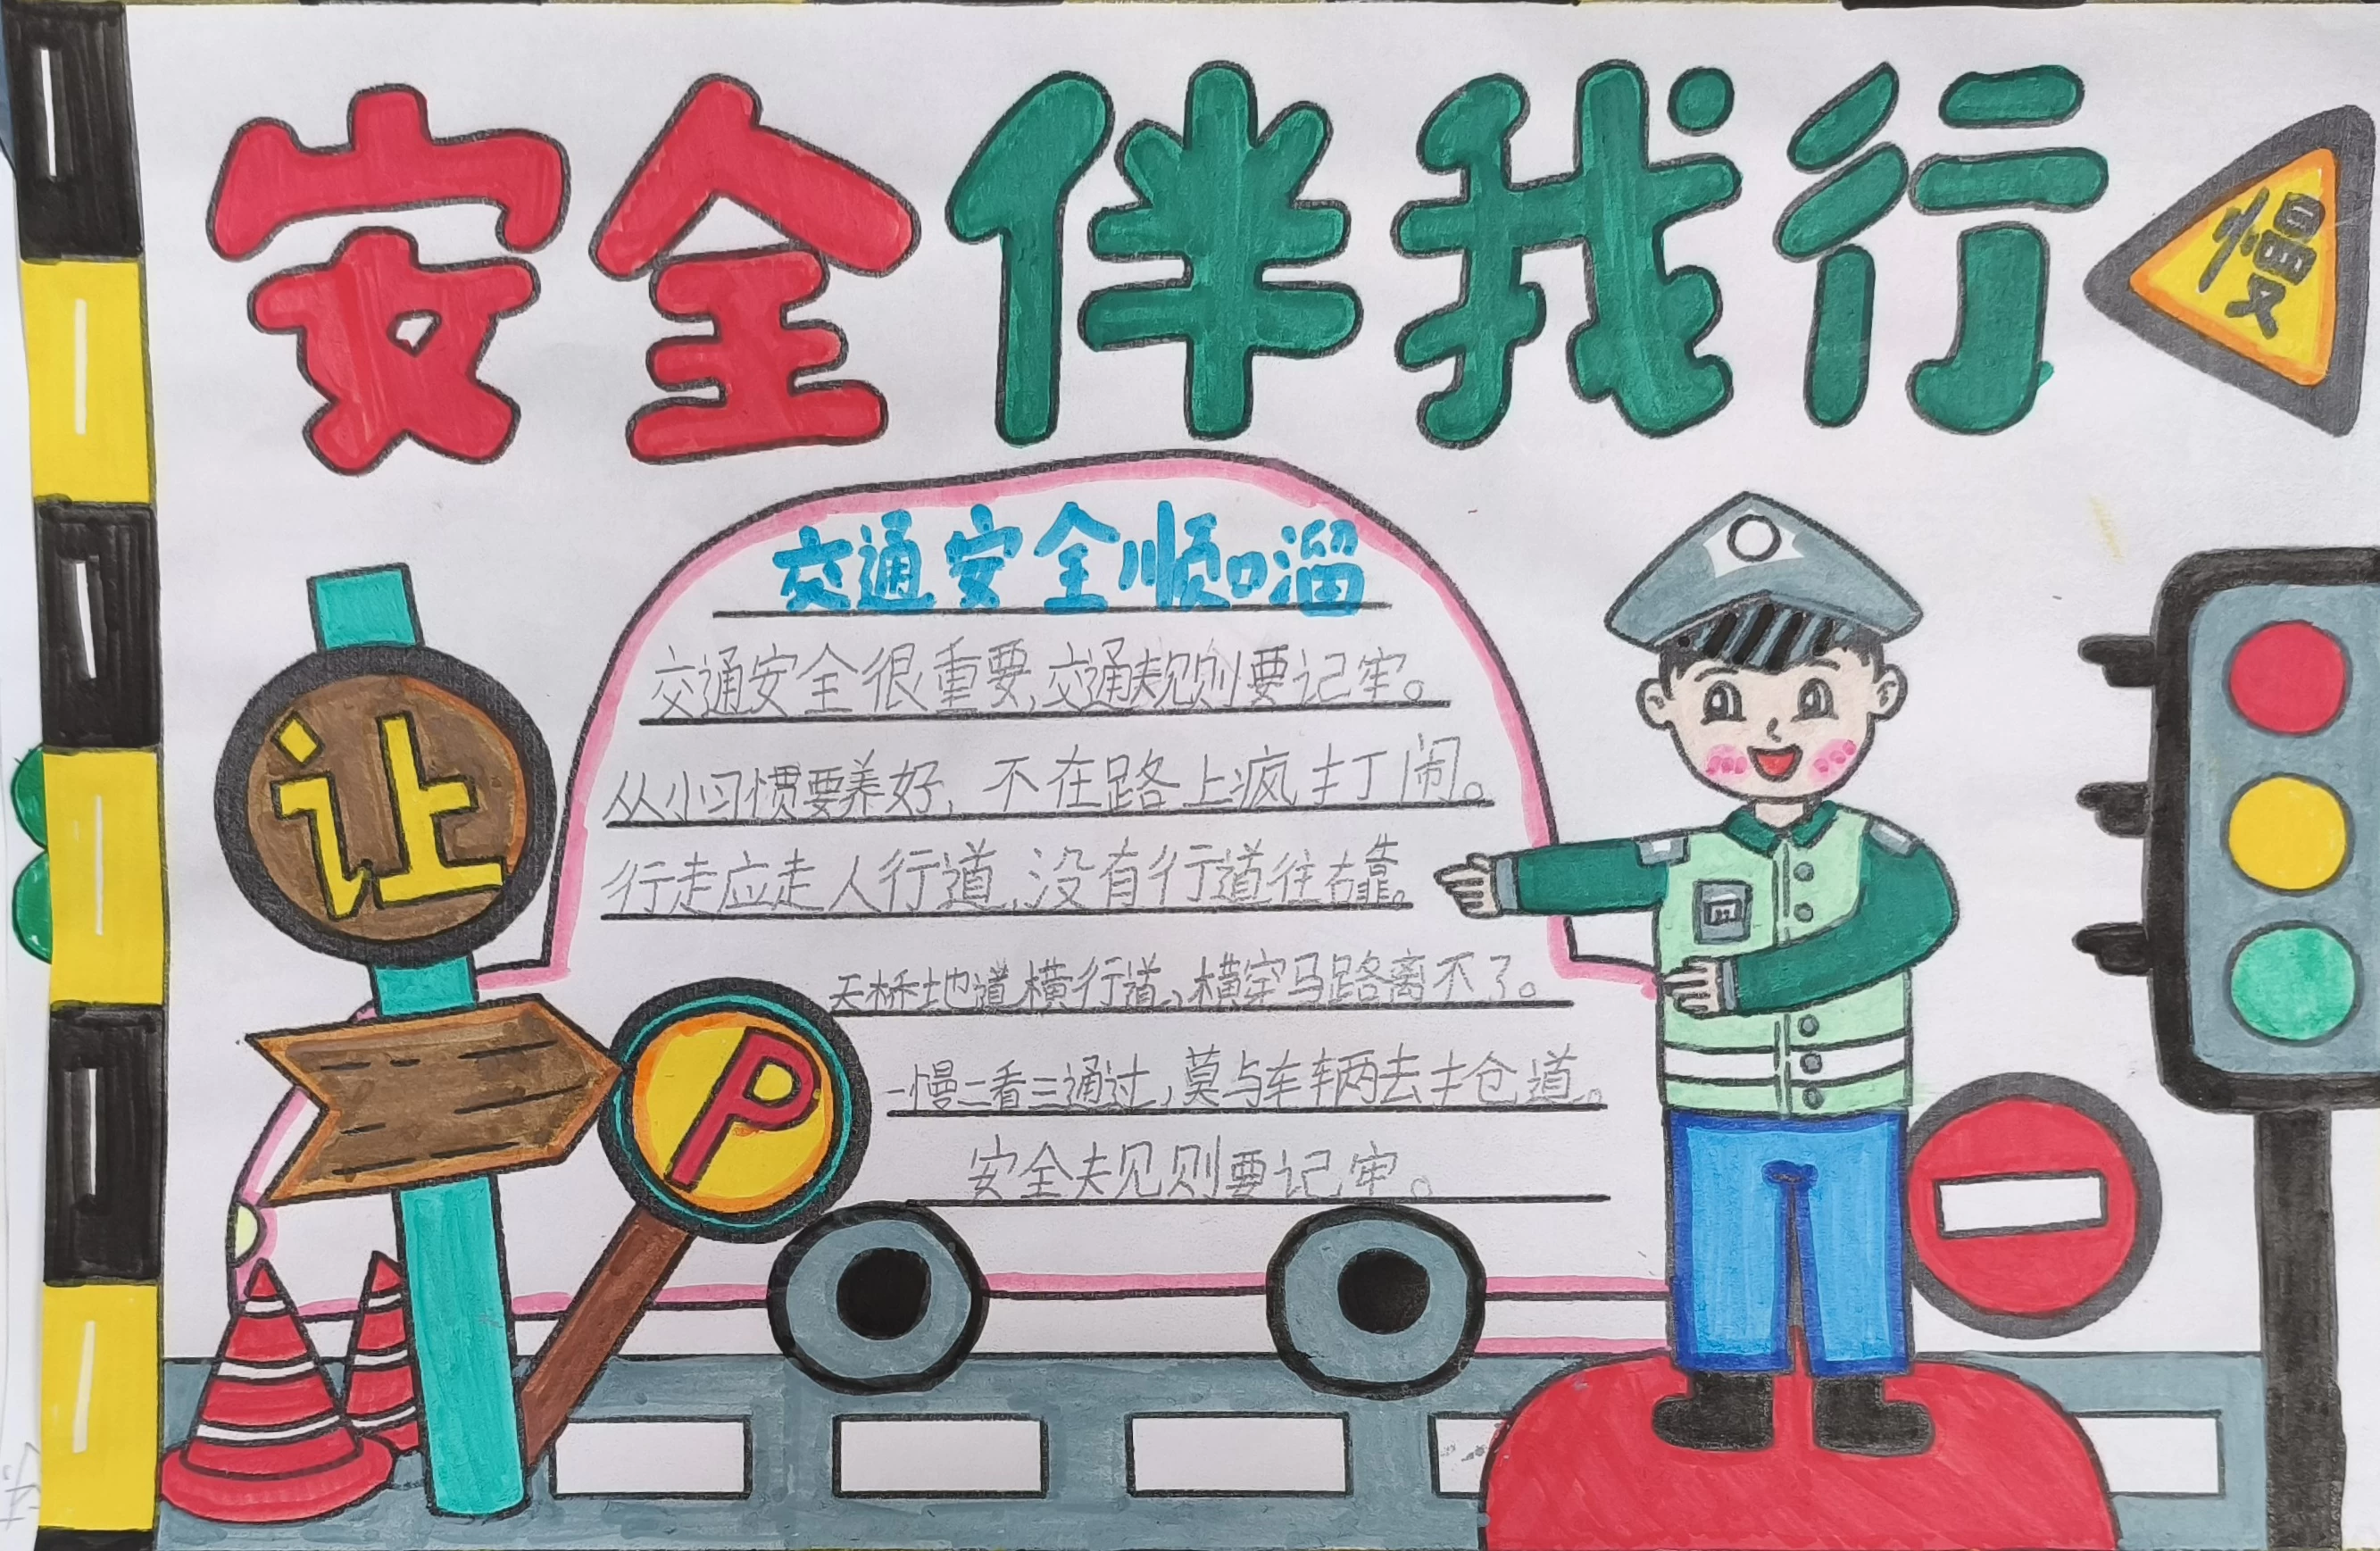 安全伴我行
慢
交通安全顺口溜
交通安全很重要,交通规则要记牢。
从小习惯要养好,不在路上疯打闹。
行走应走人行道,没有行道往右靠。
天桥地道横行道,横穿马路离不了。
一慢二看三通过,莫与车辆去抢道。
安全规则要记牢。
让
P